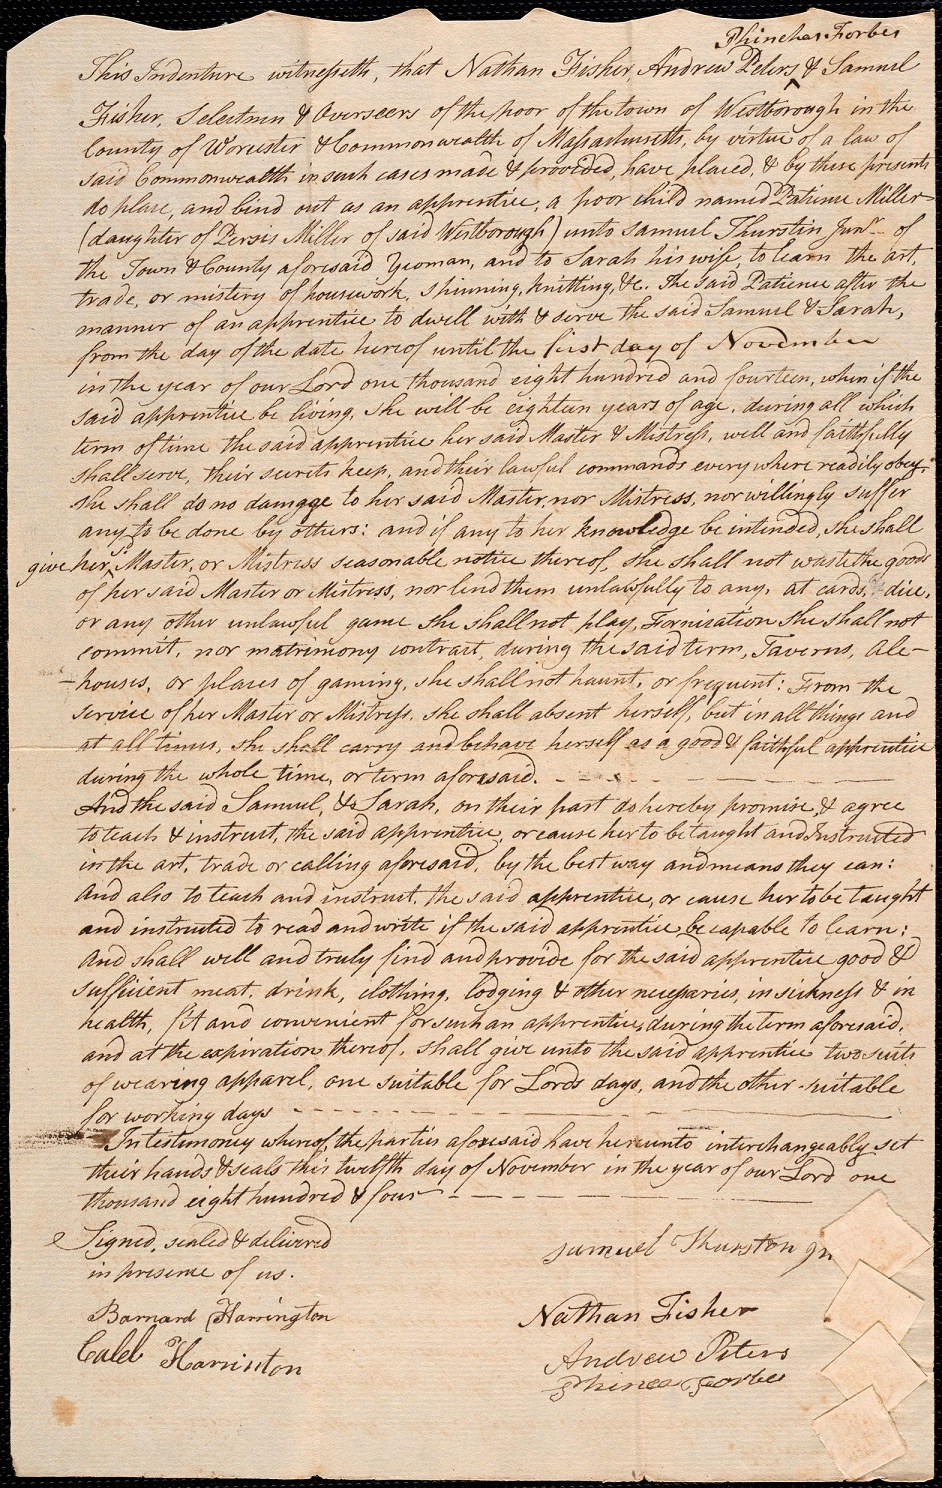 Phinehas Forbes
This Indenture witnesseth, that Nathan Fisher, Andrew Peters ^ & Samuel
Fisher, Selectmen & Overseers of the poor of the town of Westborough in the
County of Worcester & Commonwealth of Massachusetts, by virtue of a law of
said Commonwealth in such cases made & provided, have placed, & by these presents
do place, and bind out as an apprentice, a poor child named Patience Miller
(daughter of Persis Miller of said Westborough) unto Samuel Thurstin Junr. of
the Town & County aforesaid Yeoman, and to Sarah his wife, to learn the art,
trade, or mistery of housework, spinning, knitting, &c. The said Patience after the
manner of an apprentice to dwell with & serve the said Samuel & Sarah,
from the day of the date hereof until the first day of November
in the year of our Lord one thousand eight hundred and fourteen, when if the
said apprentice be living, she will be eighteen years of age, during all which
term of time the said apprentice her said Master & Mistress, well and faithfully
shall serve, their secrets keep, and their lawful commands every where readily obey.
She shall do no damage to her said Master, nor Mistress, nor willingly suffer
any to be done by others: and if any to her knowledge be intended, she shall
give her sd. Master, or Mistress seasonable notice thereof, she shall not waste the goods
of her said Master or Mistress, nor lend them unlawfully to any, at cards, dice,
or any other unlawful game she shall not play, Fornication she shall not
commit, nor matrimony contract, during the said term, Taverns, Ale-
-houses, or places of gaming, she shall not haunt, or frequent: From the
service of her Master or Mistress, she shall absent herself, but in all things and
at all times, she shall carry and behave herself as a good & faithful apprentice
during the whole time, or term aforesaid.
And the said Samuel, & Sarah, on their part do hereby promise, & agree
to teach & instruct, the said apprentice, or cause her to be taught and Instructed
in the art, trade or calling aforesaid, by the best way and means they can:
And also to teach and instruct, the said apprentice, or cause her to be taught
and instructed to read and write if the said apprentice be capable to learn:
And shall well and truly find and provide for the said apprentice good &
sufficient meat, drink, clothing, lodging & other necessaries, in sickness & in
health, fit and convenient for such an apprentice, during the term aforesaid,
and at the expiration thereof, shall give unto the said apprentice two suits
of wearing apparel, one suitable for Lords days, and the other suitable
for working days
In testimoney whereof, the parties aforesaid have hereunto interchangeably set
their hands & seals this twelfth day of November in the year of our Lord one
thousand eight hundred & four
Signed, sealed & delivered
in presence of us.
Samuel Thurston Jn
Barnard Harrington
Nathan Fisher
Caleb Harrinton
Andrew Peters
Phineas Forbes